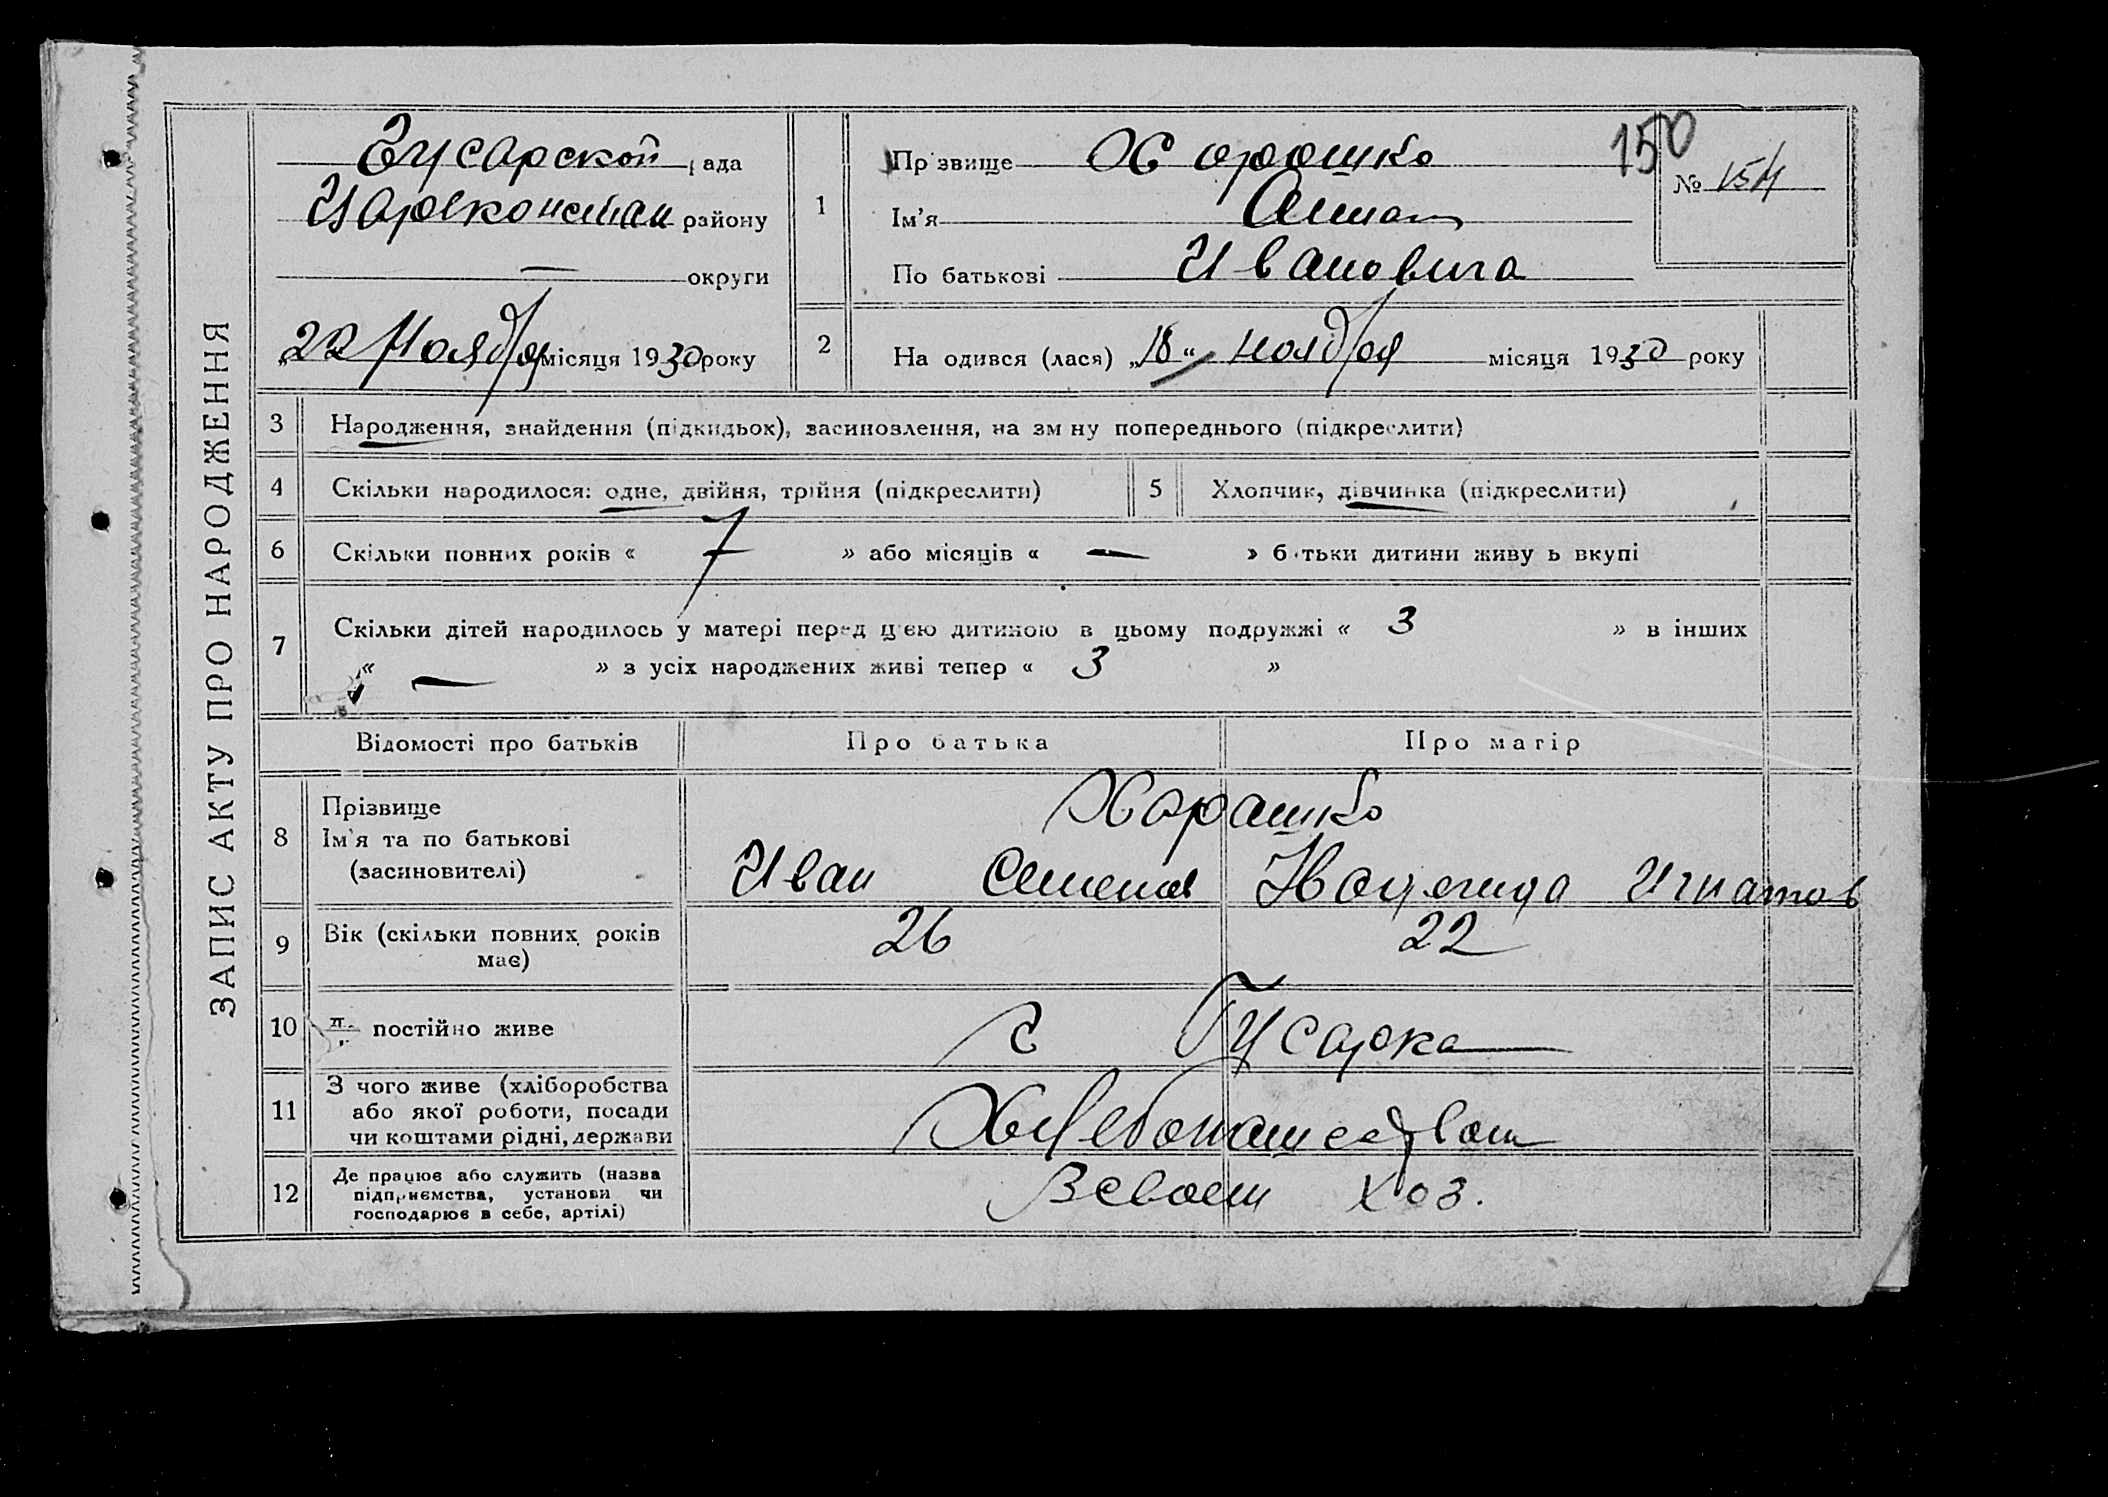 ЗАПИС АКТУ ПРО НАРОДЖЕННЯ
Гусарской рада
Царeконстан району
— округи
„22 Ноября місяця 1930 року
1
Прізвище Хорошко
Ім'я
По батькові Ивановига
150
№ 154
2
На одився (лася) „18“ ноября місяця 1930 року
3 Народження, знайдення (підкидьок), засиновлення, на зм ну попереднього (підкреслити)
4 Скільки народилося: одне, двійня, трійня (підкреслити)
5 Хлопчик, дівчинка (підкреслити)
6 Скільки повних років « 7 » або місяців « — » б тьки дитини живу ь вкупі
7 Скільки дітей народилось у матері перед цією дитиною в цьому подружжі « 3 » в інших
« — » з усіх народжених живі тепер « 3 »
Відомості про батьків Про батька Про матір
8 Прізвище
Ім'я та по батькові
(засиновителі)
Харашко
Иван Семенов Надежда Игнатов
9 Вік (скільки повних років
має)
26 22
10 постійно живе
с Гусарка
11 З чого живе (хліборобства
або якої роботи, посади
чи коштами рідні, держави
Хлебопашеством
12 Де працює або служить (назва
підприємства, установи чи
господарює в себе, артілі)
Всвоем хоз.